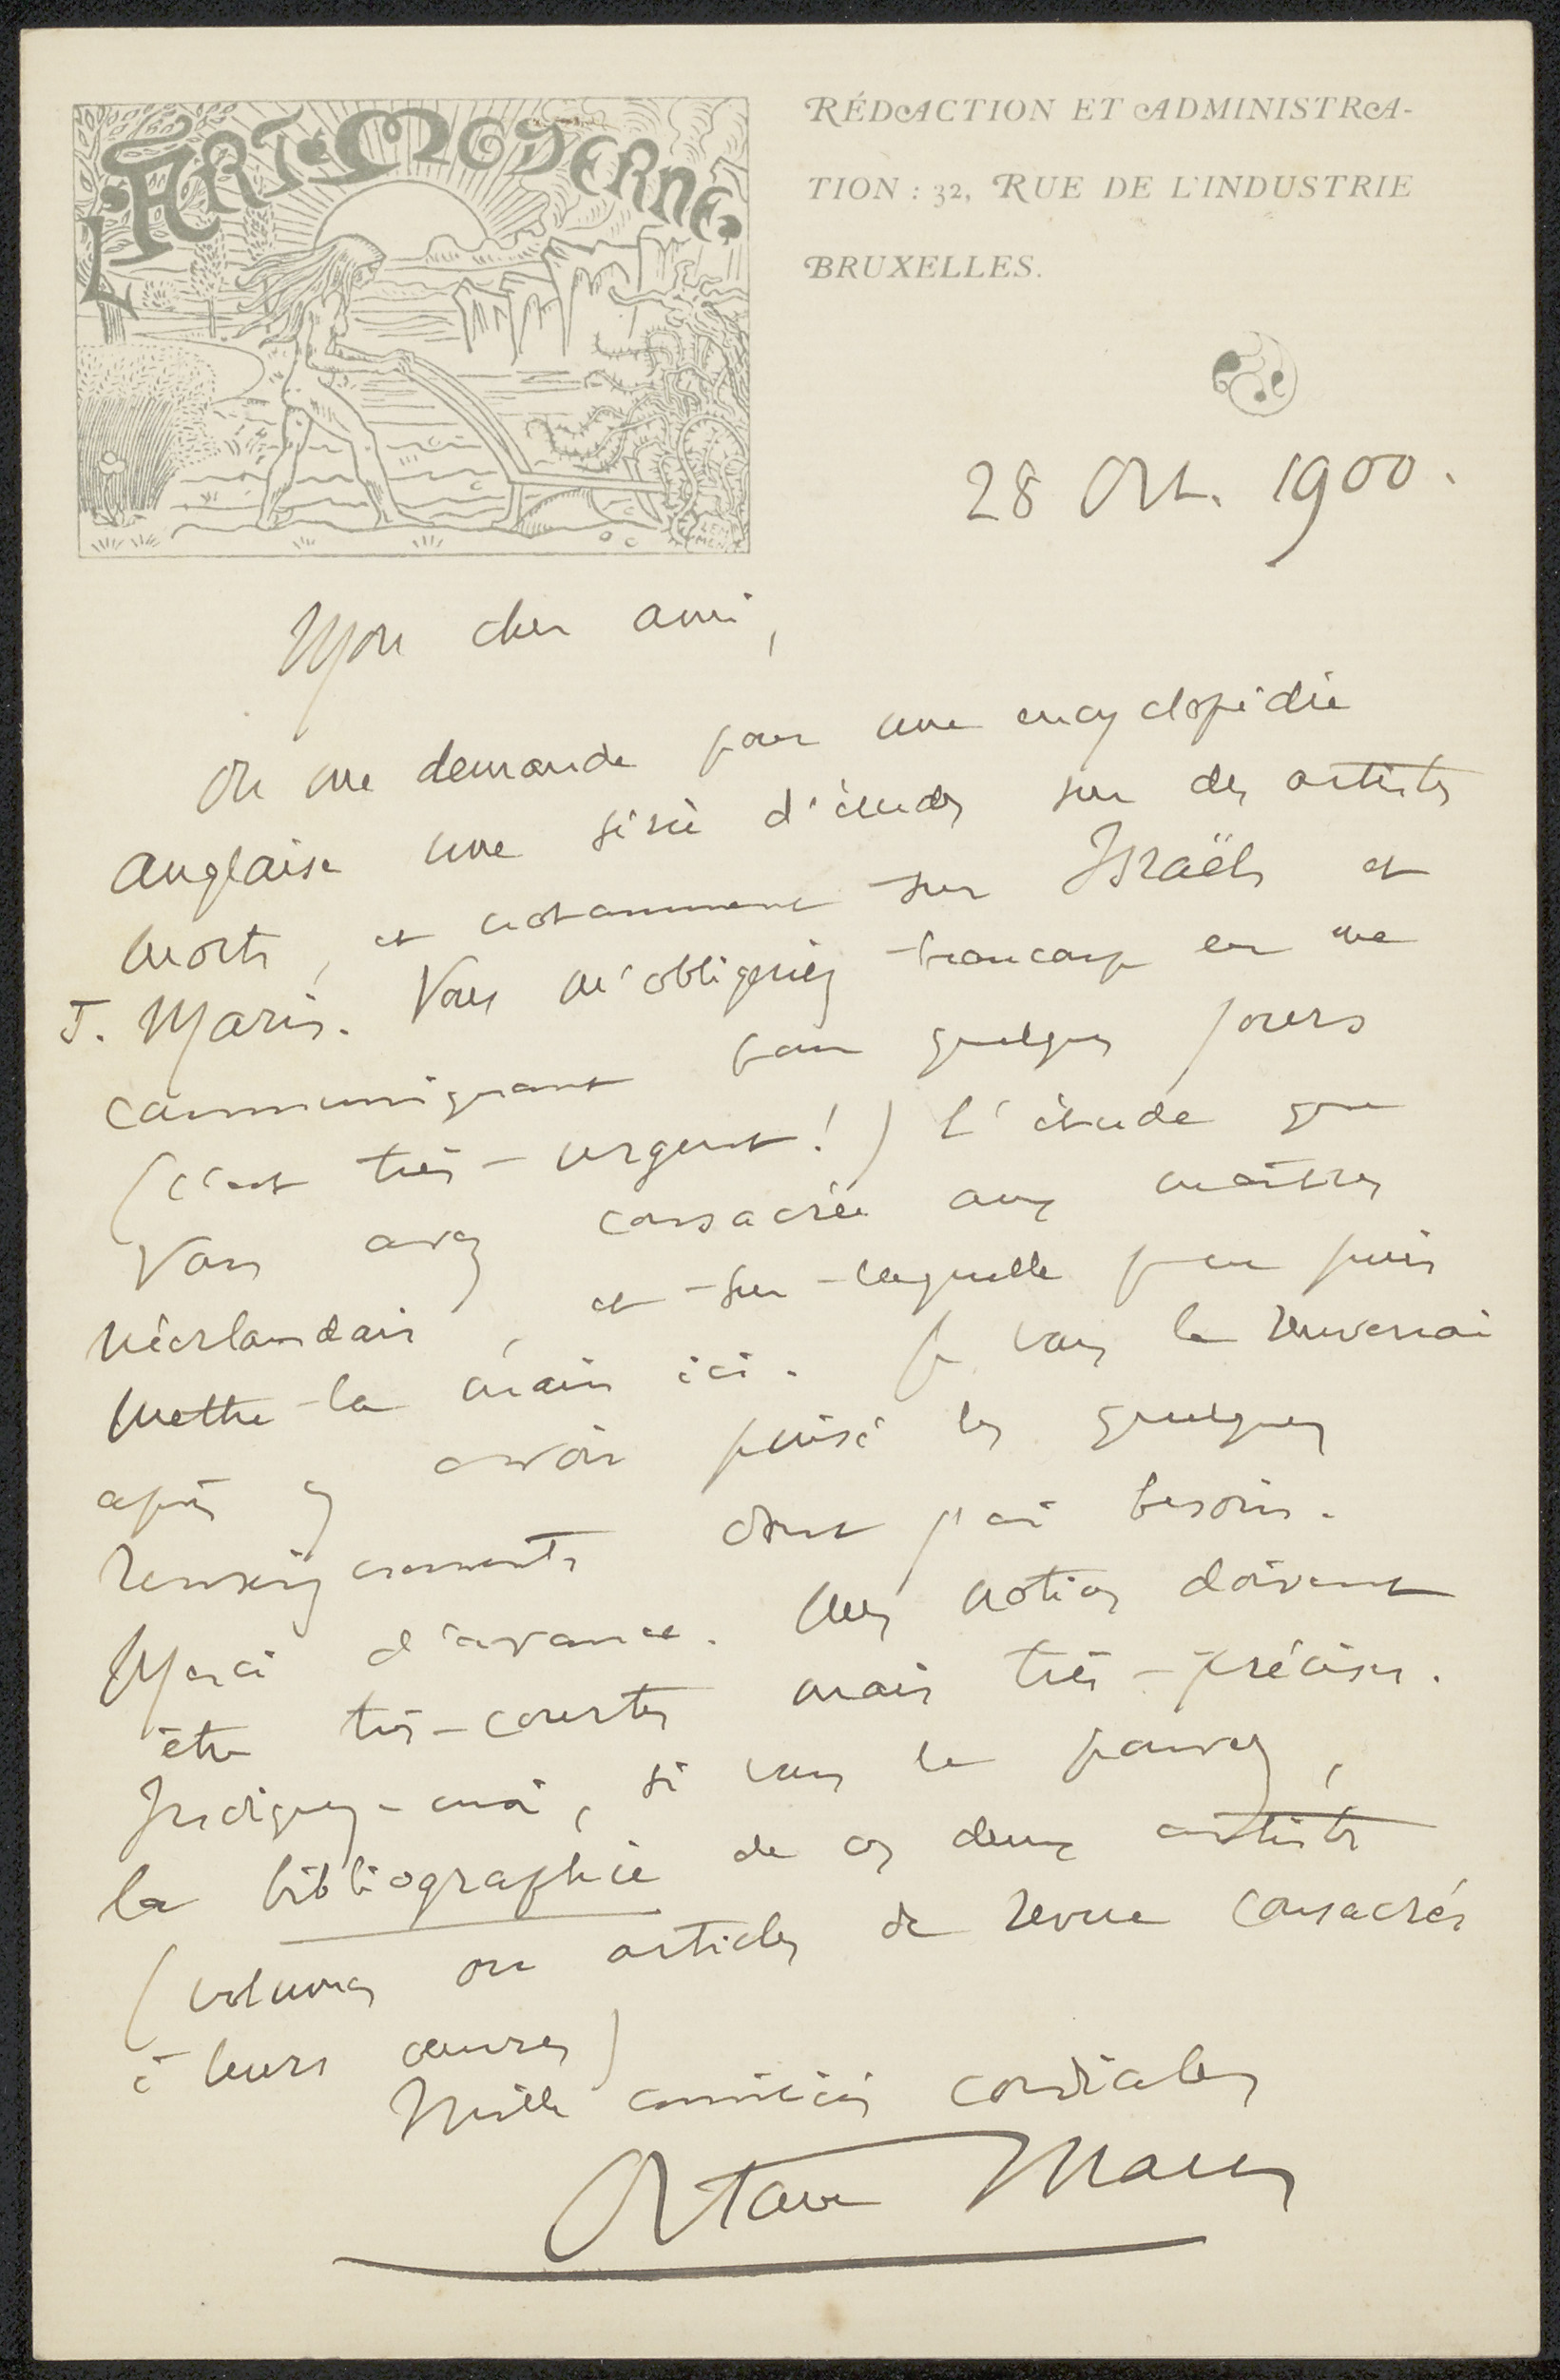 L'ART MODERNE
RÉDACTION ET ADMINISTRA-
TION : 32, RUE DE L'INDUSTRIE
BRUXELLES.
28 Oct. 1900.
Mon cher ami,
On me demande pour une encyclopédie
anglaise une série d'études sur des artistes
morts, et notamment sur Israëls et
J. Maris. Vous m'obligeriez beaucoup en me
communiquant pour quelques jours
(c'est très-urgent!) l'étude que
vous avez consacrée aux maîtres
néerlandais, et sur laquelle je ne puis
mettre la main ici. Je vous la renverrai
après y avoir puisé les quelques
renseignements dont j'ai besoin.
Merci d'avance. Mes notices doivent
être très-courtes mais très-précises.
Indiquez-moi, si vous le pouvez,
la bibliographie de ces deux artistes
(volumes ou articles de revue consacrés
à leurs œuvres)
Mille amitiés cordiales
Octave Maus